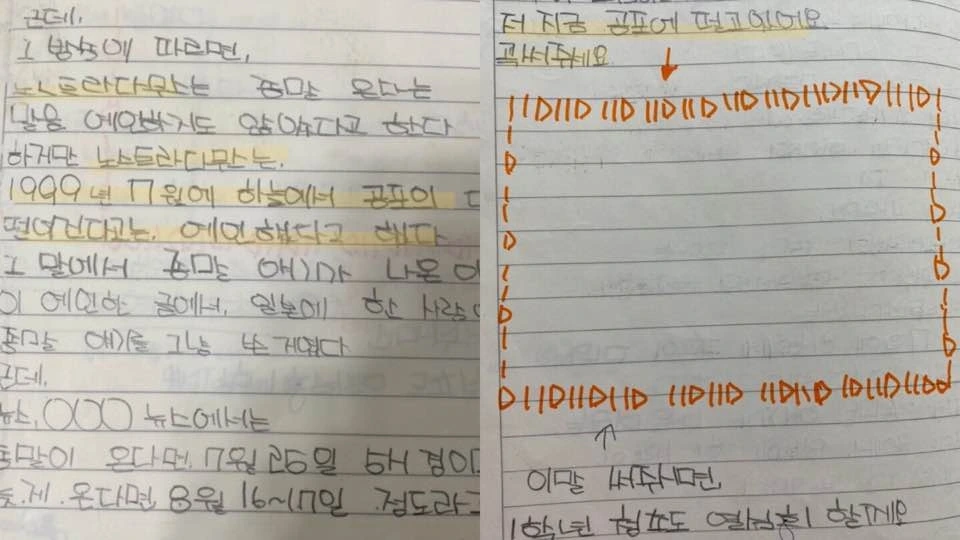 근데,
그 방식에 따르면,
노스트라다무스는 종말 온다는
말을 예언하지도 않았다고 한다
하지만 노스트라다무스는,
1999년 7월에 하늘에서 공포의
떨어진다고는, 예언했다고 했다
그 말에서 종말 얘기가 나온
이 예언한 글에서, 일본에 한 사람
종말 얘기를 그냥 쓴거였다
근데,
뉴스, OOO 뉴스에서는
종말이 온다면, 7월 25일 5시 경이
온다면, 8월 16~17일 정도라고
저 지금 공포에 떨고있어요
꼭써주세요
이말 써주시면,
1학년 열심히 할게요